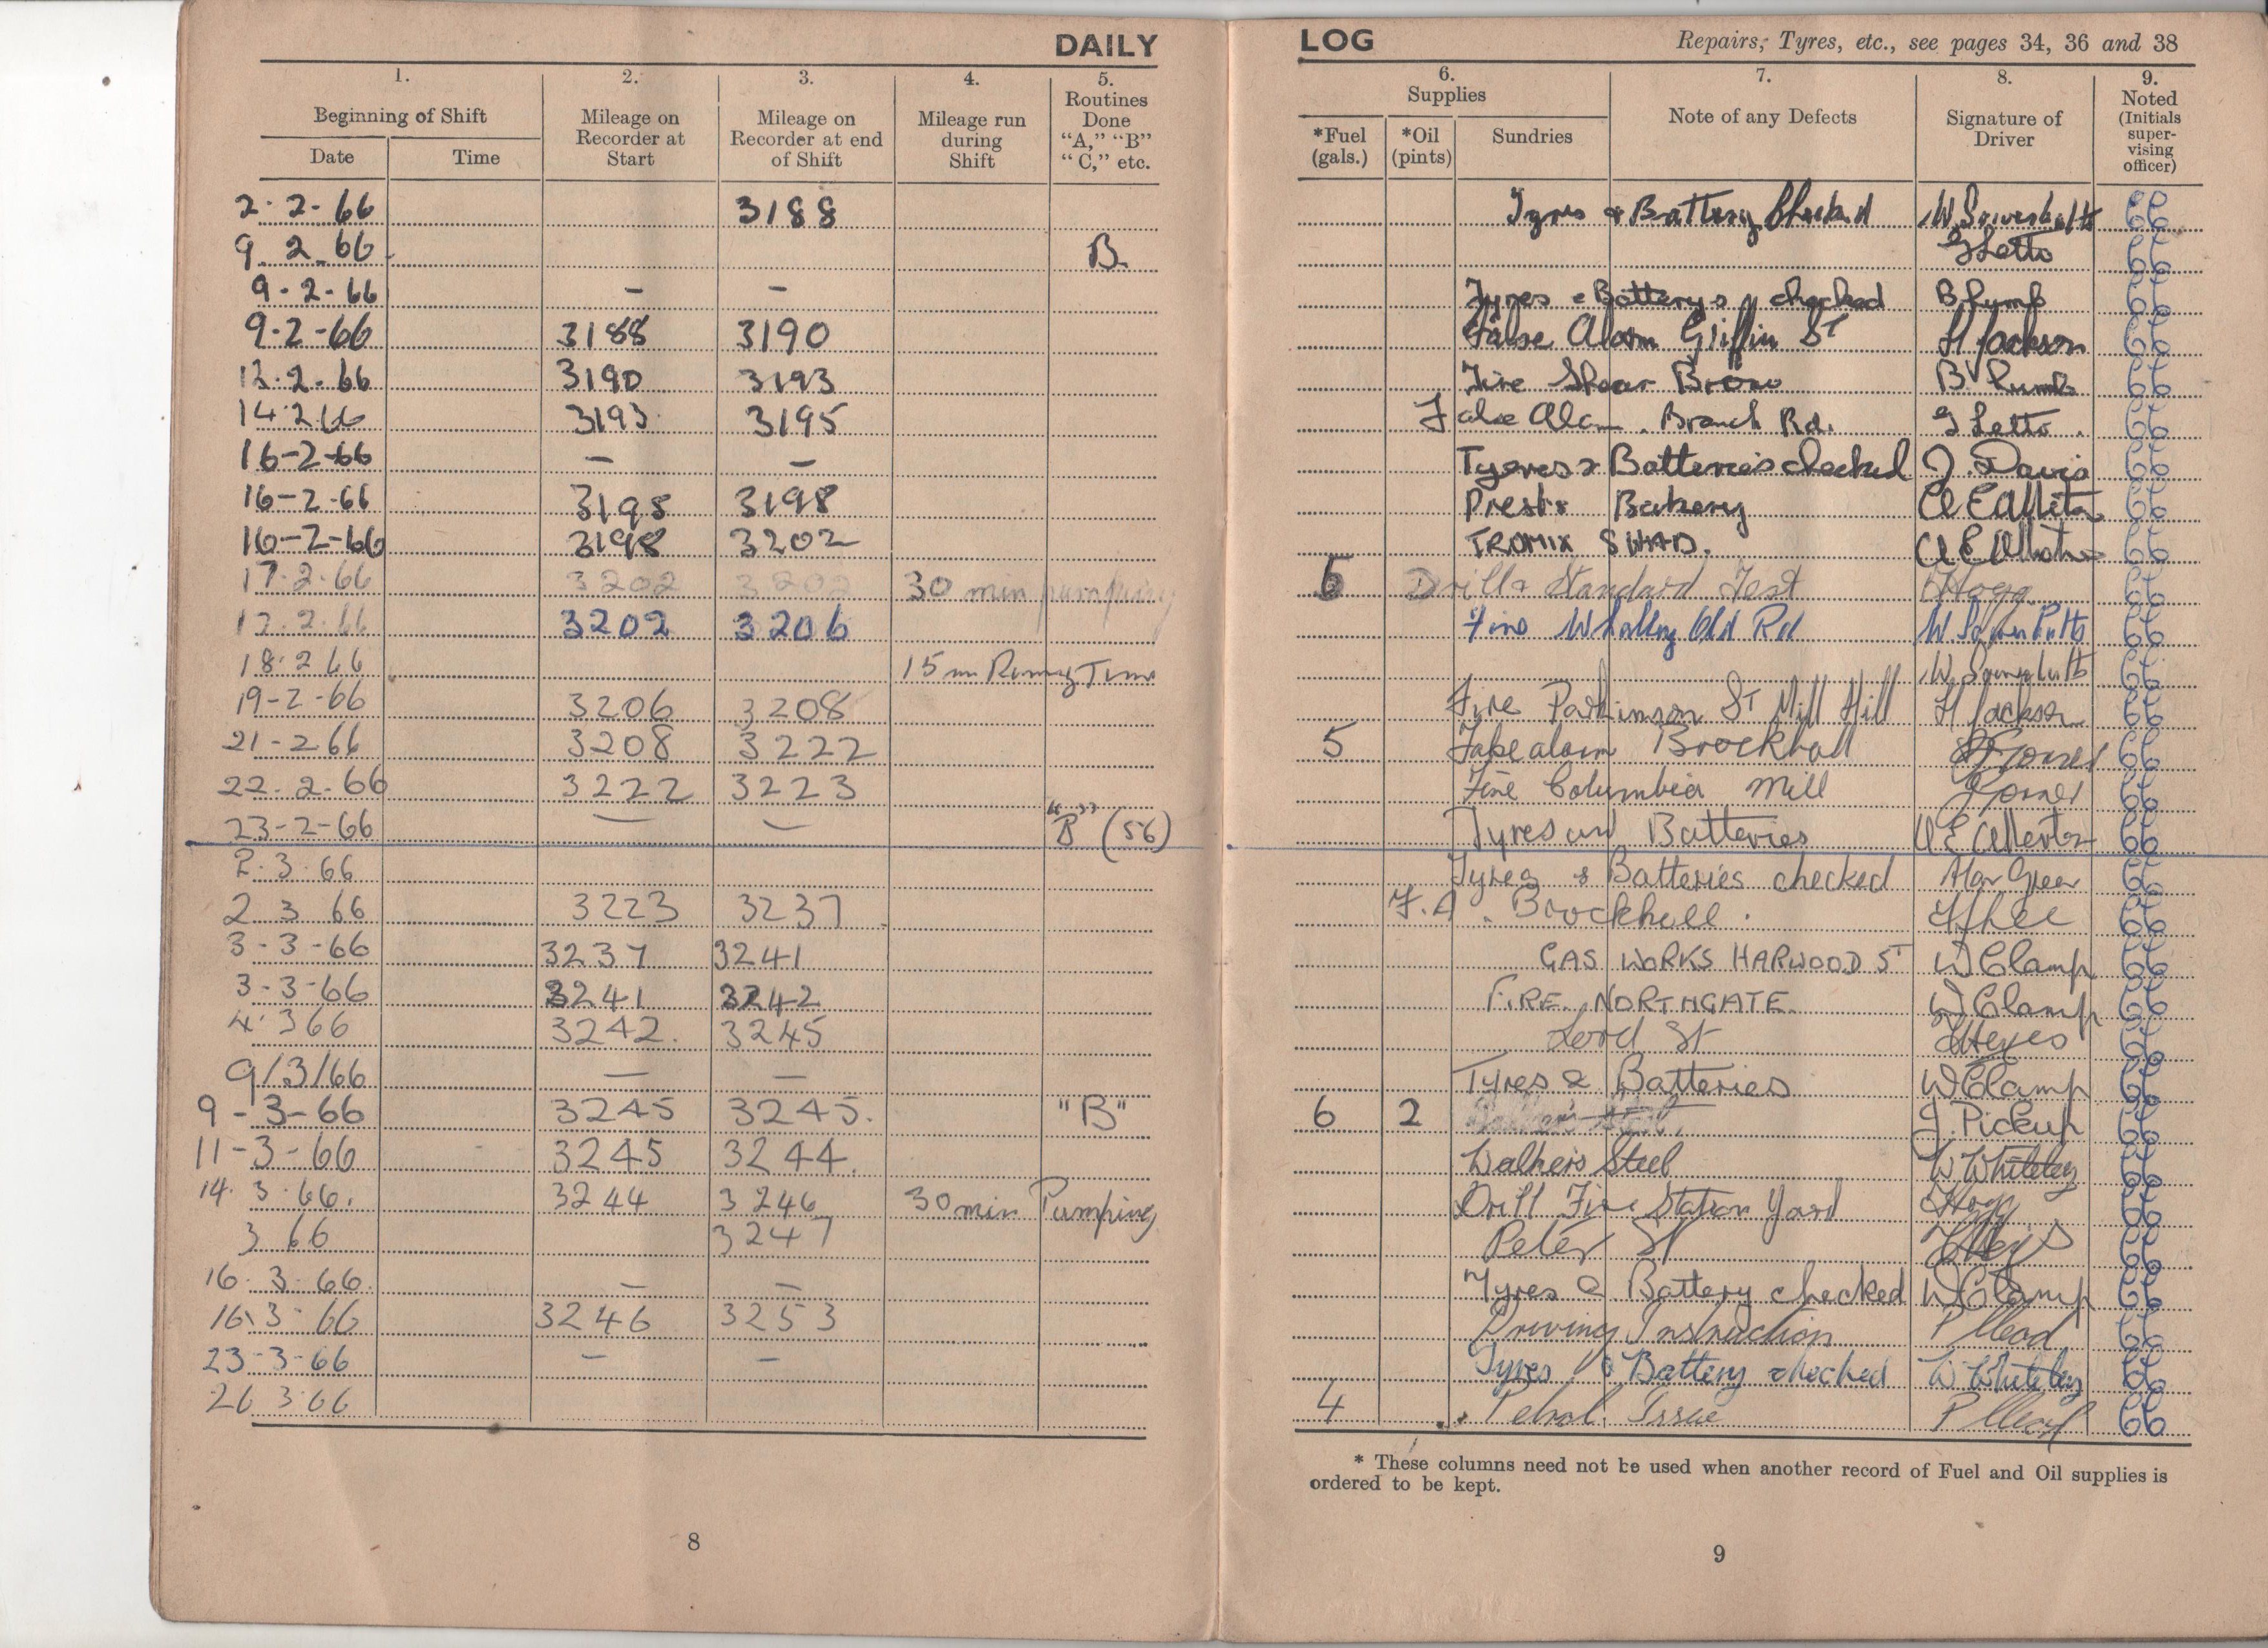 DAILY LOG Repairs, Tyres, etc., see pages 34, 36 and 38
1. 2. 3. 4. 5. 6. 7. 8. 9.
Beginning of Shift
Date Time
Mileage on Recorder at Start
Mileage on Recorder at end of Shift
Mileage run during Shift
Routines Done "A," "B" "C," etc.
Supplies
*Fuel (gals.) *Oil (pints) Sundries
Note of any Defects
Signature of Driver
Noted (Initials super-vising officer)
2.2-66 3188 Tyres & Battery Checked
9.2.66 B G Letto
9-2-66 - - Tyres & Batterys checked B Lumb
9-2-66 3188 3190 False Alarm Griffin St H Jackson
3190 3193 Fire Shear Brow B Lumb
14.2.66 3193 3195 False Alarm. Branch Rd. G Letto.
16-2-66 - - Tyeres & Batteries checked J. Davis
16-2-66 3195 3198 Bakery
16-2-66 3198 3202 TROMIX SHAD.
17.2.66 3202 3202 30 min pumping Drill & Standard Test Hogg
17.2.66 3202 3206 Fire Whalley Old Rd
18.2.66 15 m Runng Time
19-2-66 3206 3208 Fire Parkinson St Mill Hill H Jackson
21-2.66 3208 3222 5 False alarm Brockhall
22.2.66 3222 3223 Fire Columbia Mill
23-2-66 - - "B" (56) Tyres and Batteries
2.3.66 Tyres & Batteries checked Alan Green
2 3 66 3223 3237 F.A. Brockhall.
3-3-66 3237 3241 GAS WORKS HARWOOD ST W Clamp
3-3-66 3241 3242 FIRE. NORTHGATE. W Clamp
4.3 66 3242. 3245 Lord St
9/3/66 - - Tyres & Batteries W Clamp
9-3-66 3245 3245. "B" 6 2 J. Pickup
11-3-66 3245 3244. Walkers Steel W Whiteley
14.3.66. 3244 3246 30 min Pumping Drill Fire Station Yard Hogg
3 66 3247 Peter St
16.3.66. - - Tyres & Battery checked W Clamp
16.3.66 3246 3253 Driving Instruction
23-3-66 - - Tyres & Battery checked W Whiteley
26 3 66 4 Petrol. Issue
* These columns need not be used when another record of Fuel and Oil supplies is
ordered to be kept.
8
9